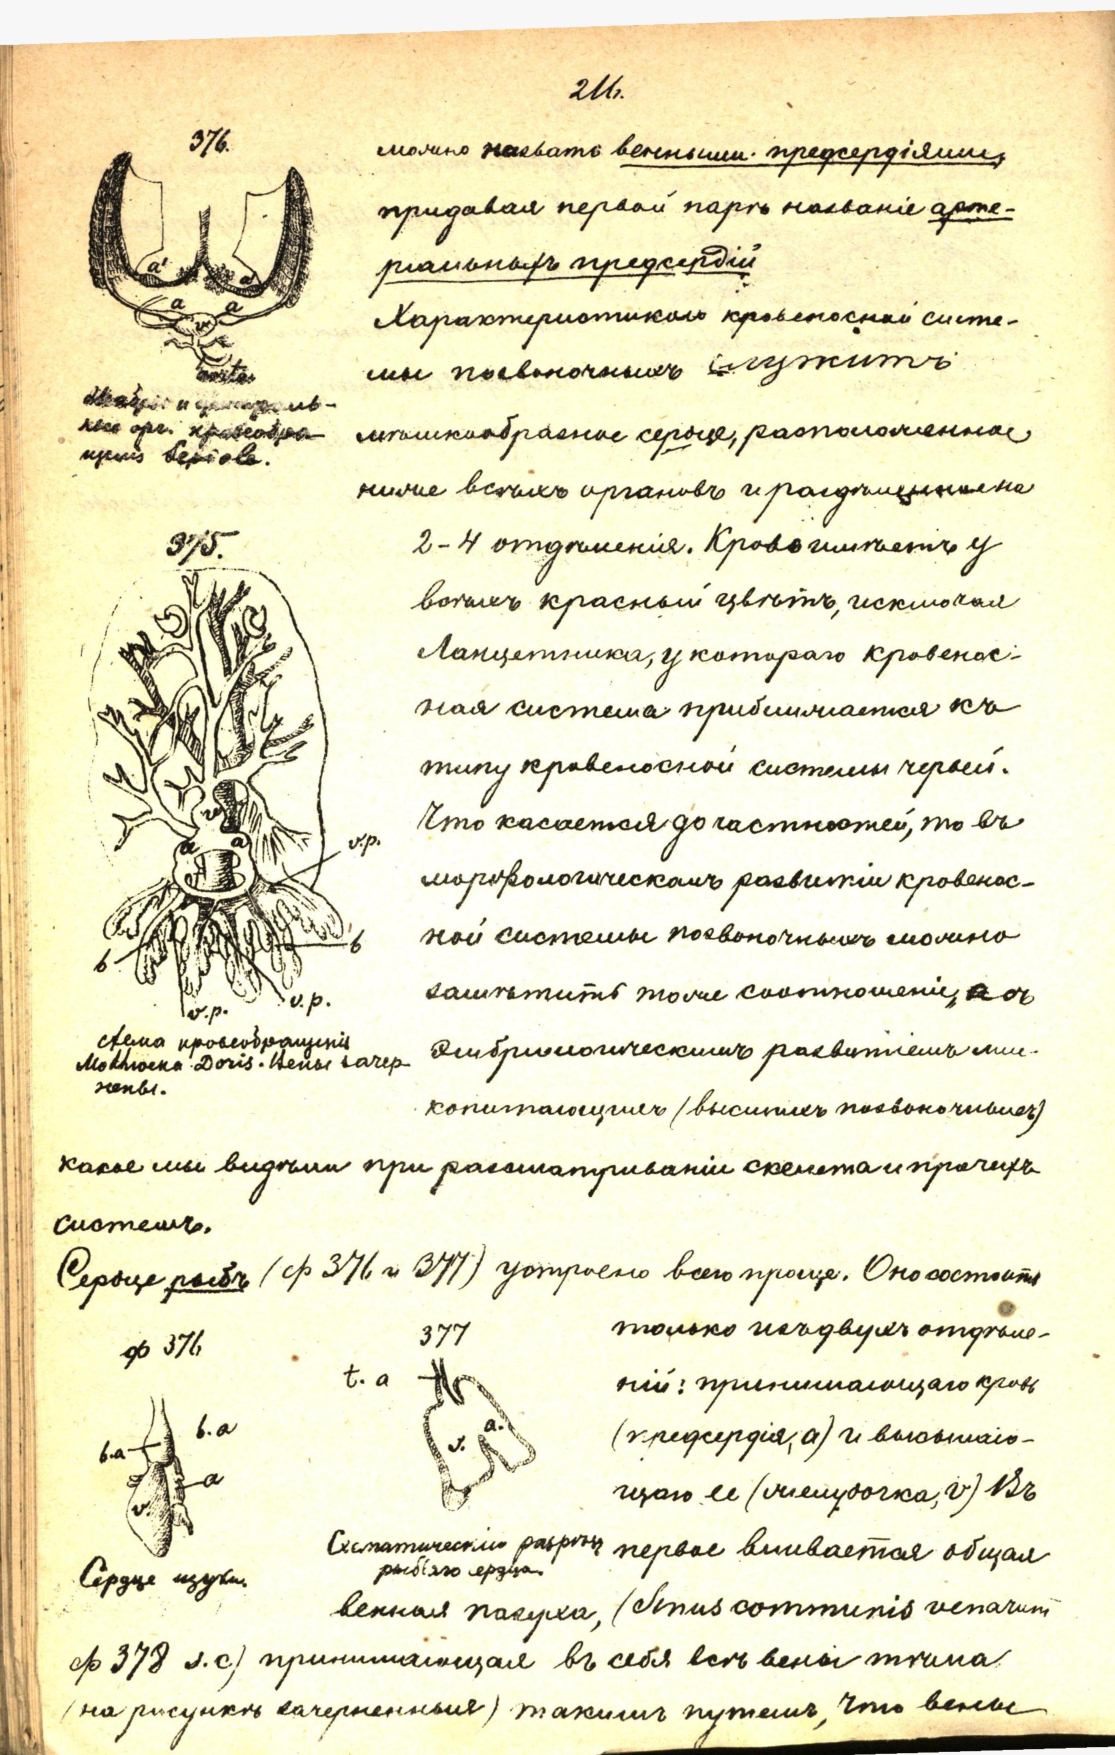 211.
376.
можно назвать венными предсердіями,
придавая первой парѣ названіе арте-
ріальныхъ предсердій
Характеристикою кровеносной систе-
мы позвоночныхъ служитъ
мѣшкообразное сердце, расположенное
ниже всѣхъ органовъ и раздѣленное на
2-4 отдѣленія. Кровь имѣетъ у
всѣхъ красный цвѣтъ, исключая
Ланцетника, у котораго кровенос-
ная система приближается къ
типу кровеносной системы червей.
Что касается до частностей, то въ
морфологическомъ развитіи кровенос-
ной системы позвоночныхъ можно
замѣтить тоже соотношеніе, съ
эмбріологическимъ развитіемъ мле-
копитающихъ (высшихъ позвоночныхъ)
какое мы видѣли при разсматриваніи скелета и прочихъ
системъ.
a' a'
a a
v
aorta
Жабры и
орг. кровеобра-
щенія
375.
v
a a
v.p.
b b
v.p. v.p.
схема кровеобращенія
Моллюска Doris. Вены зачер-
нены.
Сердце рыбъ (ф 376 и 377) устроено всего проще. Оно состоитъ
только изъ двухъ отдѣле-
ній: принимающаго кровь
(предсердія, a) и высылаю-
щаго ее (желудочка, v) Въ
первое вливается общая
ф 376
b.a b.a
a
v.
Сердце щуки.
377
t. a
a.
v.
Схематическій разрѣзъ
рыбьяго сердца.
венная пазуха, (Sinus communis venarum
ф 378 s.c) принимающая въ себя всѣ вены тѣла
(на рисункѣ зачерненныя) такимъ путемъ, что вены